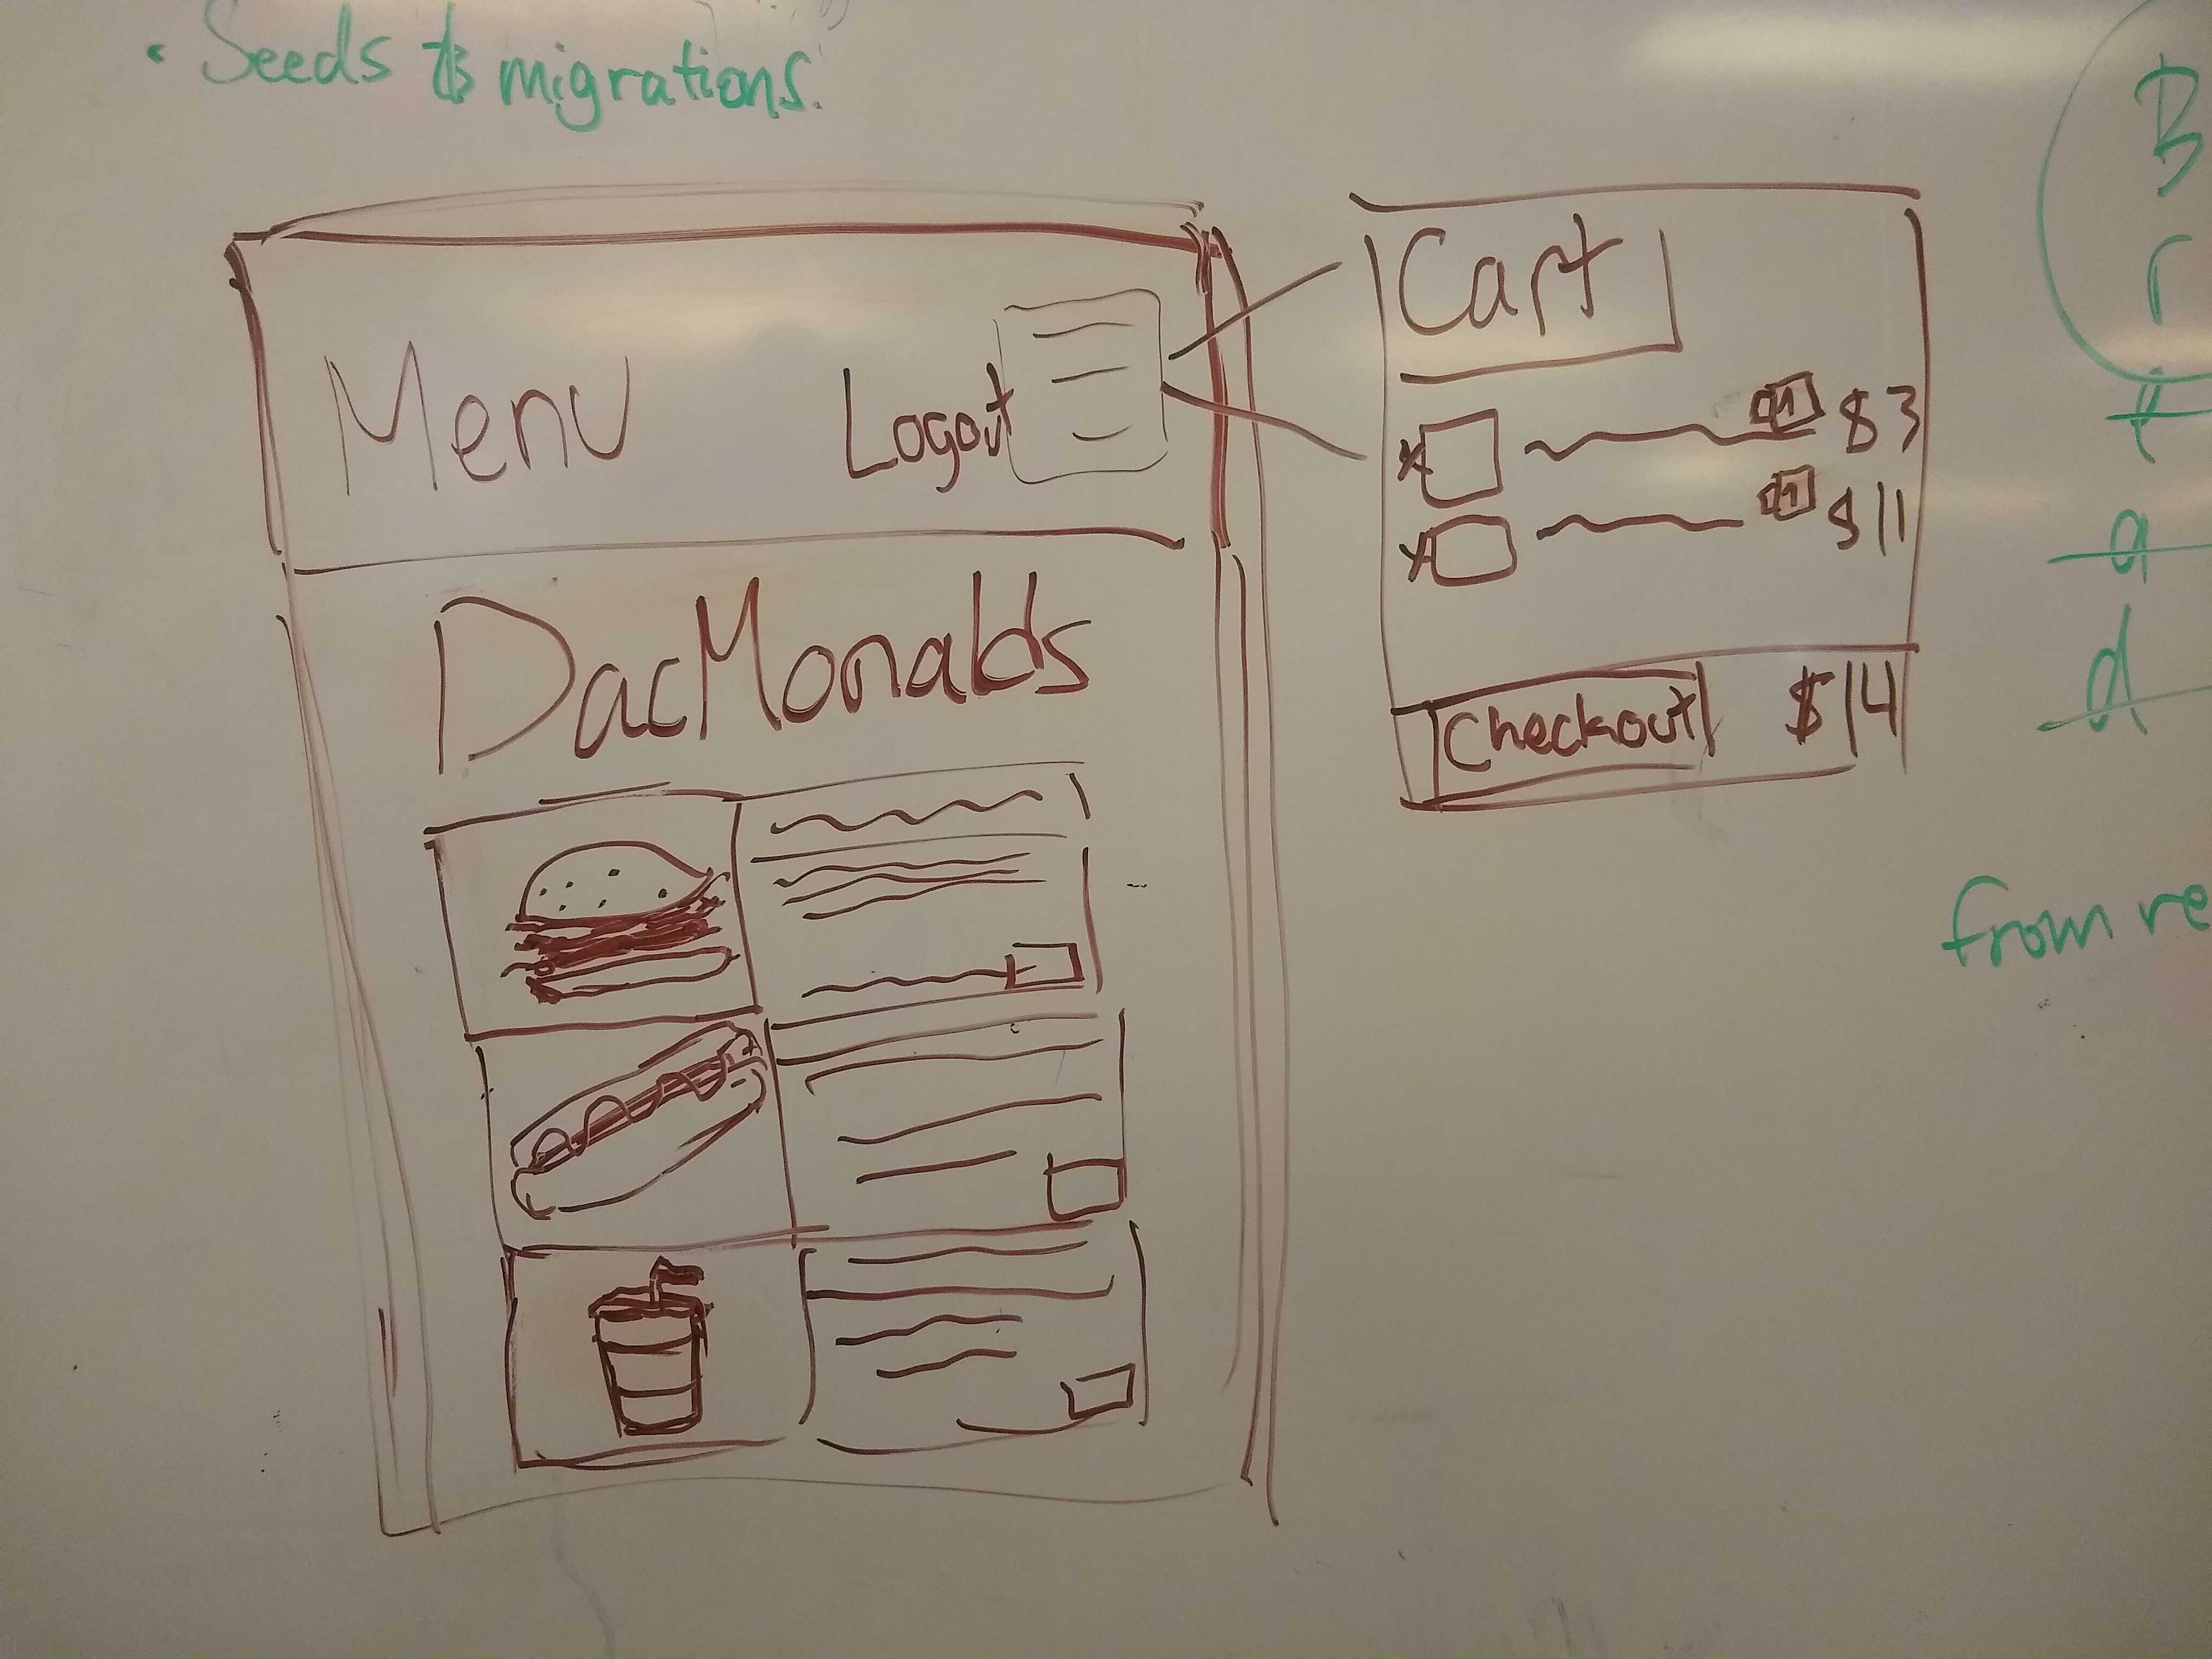 • Seeds & migrations.
Menu
Logout
DacMonalds
Cart
1 $3
1 $11
Checkout $14
B
r
t
a
d
from re